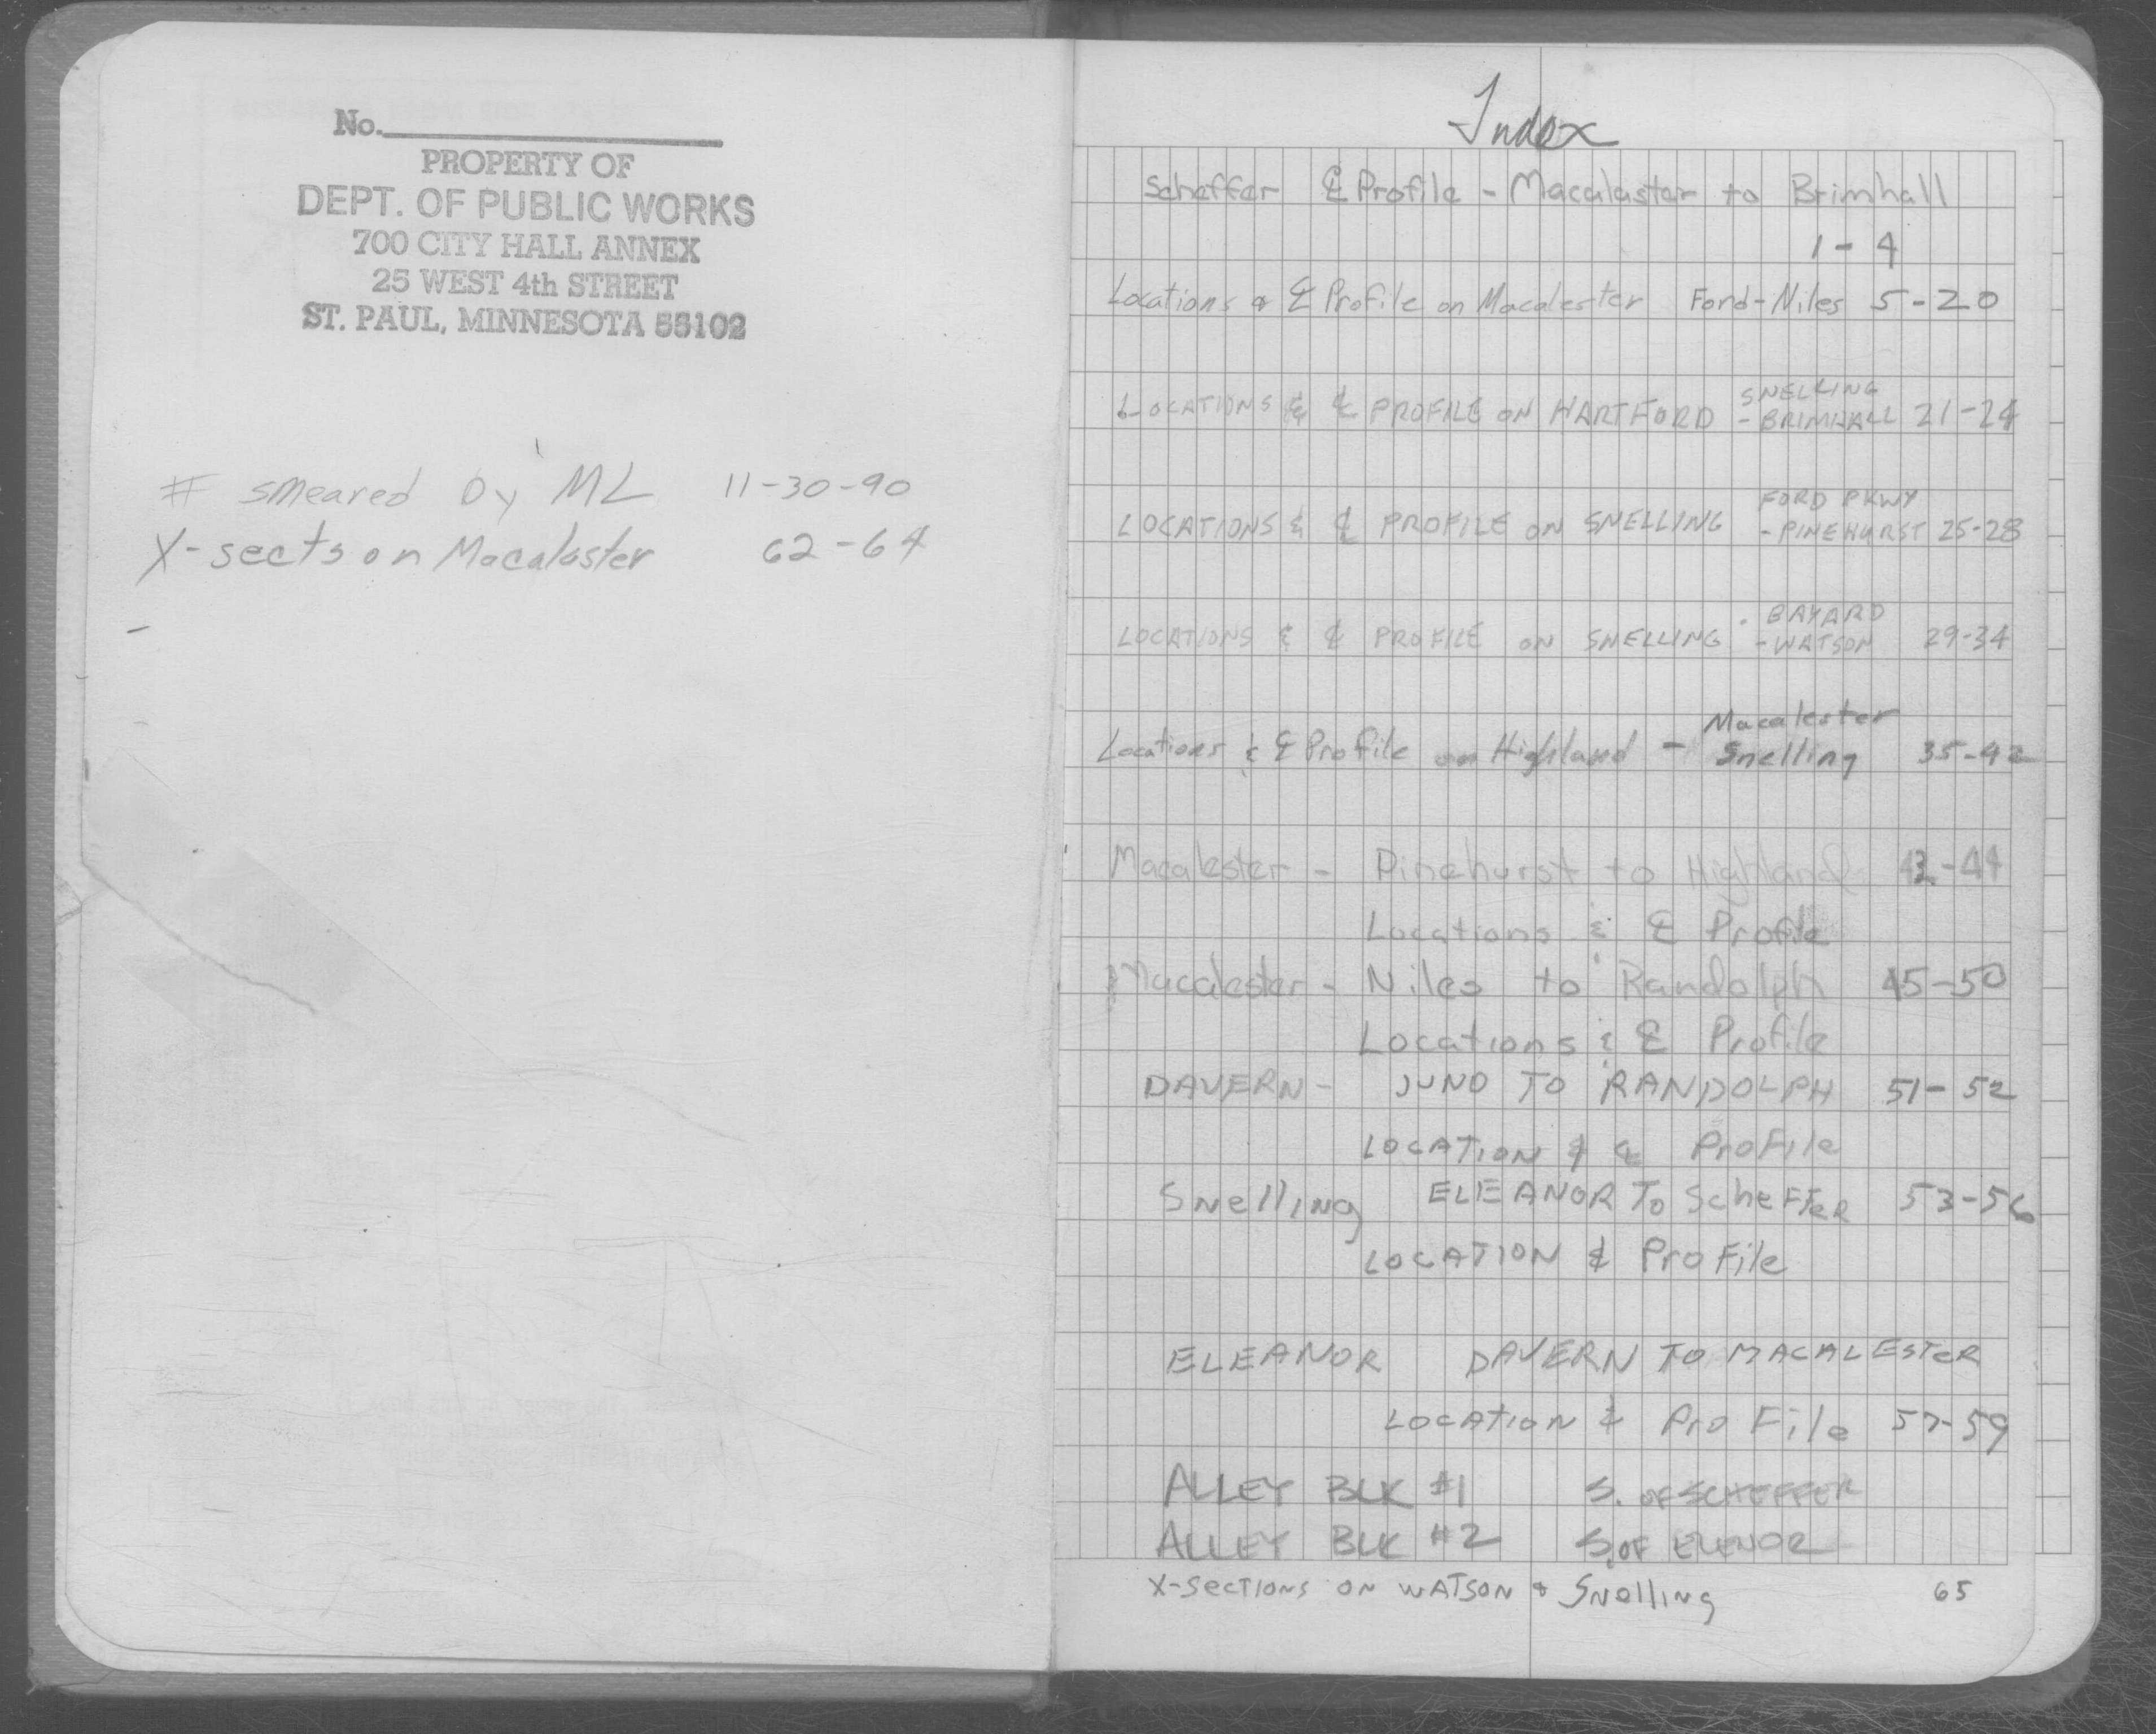 No.
PROPERTY OF
DEPT. OF PUBLIC WORKS
700 CITY HALL ANNEX
25 WEST 4th STREET
ST. PAUL, MINNESOTA 55102
# smeared by ML 11-30-90
X-sects on Macalaster 62-64
Index
Scheffer ℄ Profile - Macalaster to Brimhall
1-4
Locations & ℄ Profile on Macalester Ford-Niles 5-20
SNELLING
LOCATIONS & ℄ PROFILE ON HARTFORD - BRIMHALL 21-24
FORD PKWY
LOCATIONS & ℄ PROFILE ON SNELLING - PINEHURST 25-28
BAYARD
LOCATIONS & ℄ PROFILE ON SNELLING - WATSON 29-34
Macalester
Locations & ℄ Profile on Highland - Snelling 35-42
Macalester - Pinehurst to Highland 42-44
Locations & ℄ Profile
Macalester - Niles to Randolph 45-50
Locations & ℄ Profile
DAVERN - JUNO TO RANDOLPH 51-52
LOCATION & ℄ Profile
Snelling ELEANOR To Scheffer 53-56
LOCATION & Profile
ELEANOR DAVERN TO MACALESTER
LOCATION & Pro File 57-59
ALLEY BLK #1 S. OF SCHEFFER
ALLEY BLK #2 S. OF ELENOR
X-SECTIONS ON WATSON & Snelling 65